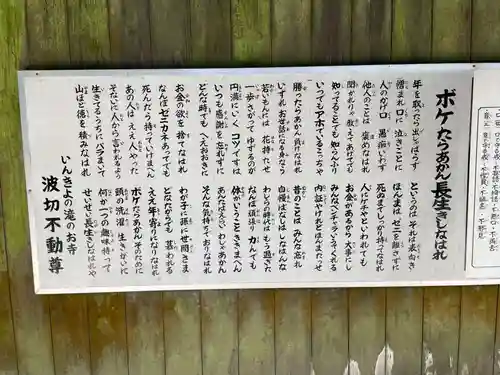 ボケたらあかん長生きしなはれ
年を取ったら 出しゃばらず
憎まれ口に 泣きごとに
人のかげ口 愚痴いわず
他人のことは 褒めなはれ
聞かれりゃ 教えてあげても
知ってることでも 知らんふり
いつでもアホでいるこっちゃ
勝ったらあかん 負けなはれ
いずれお世話になる身なら
若いもんには 花持たせ
一歩さがって ゆずるのが
円満にいく コツですわ
いつも感謝を 忘れずに
どんな時でも へえおおきに
お金の欲を 捨てなはれ
なんぼゼニカネあっても
死んだら持っていけまへん
あの人は ええ人やった
そないに人から言われるよう
生きてるうちに バラまいて
山ほど徳を 積みなはれ
というのは それは表向き
ほんまは ゼニを 離さずに
死ぬまでしっかり 持ってなはれ
人にケチやと いわれても
お金があるから 大事にし
みんなベンチャラいうてくれる
内証やけど ほんまだっせ
昔のことは みんな忘れ
自慢ばなしは しなはんな
わしらの時代は もう過ぎた
なんぼ頑張り 力んでも
体がいうこと ききまへん
あんたはえらい わしゃあかん
そんな気持ちで おりなはれ
わが子に孫に 世間さま
どなたからでも 慕われる
ええ年寄りに なりなはれ
ボケたらあかん そのために
頭の洗濯 生きがいに
何か一つの 趣味持って
せいぜい長生き しなはれや
いんきよの滝のお寺
波切不動尊